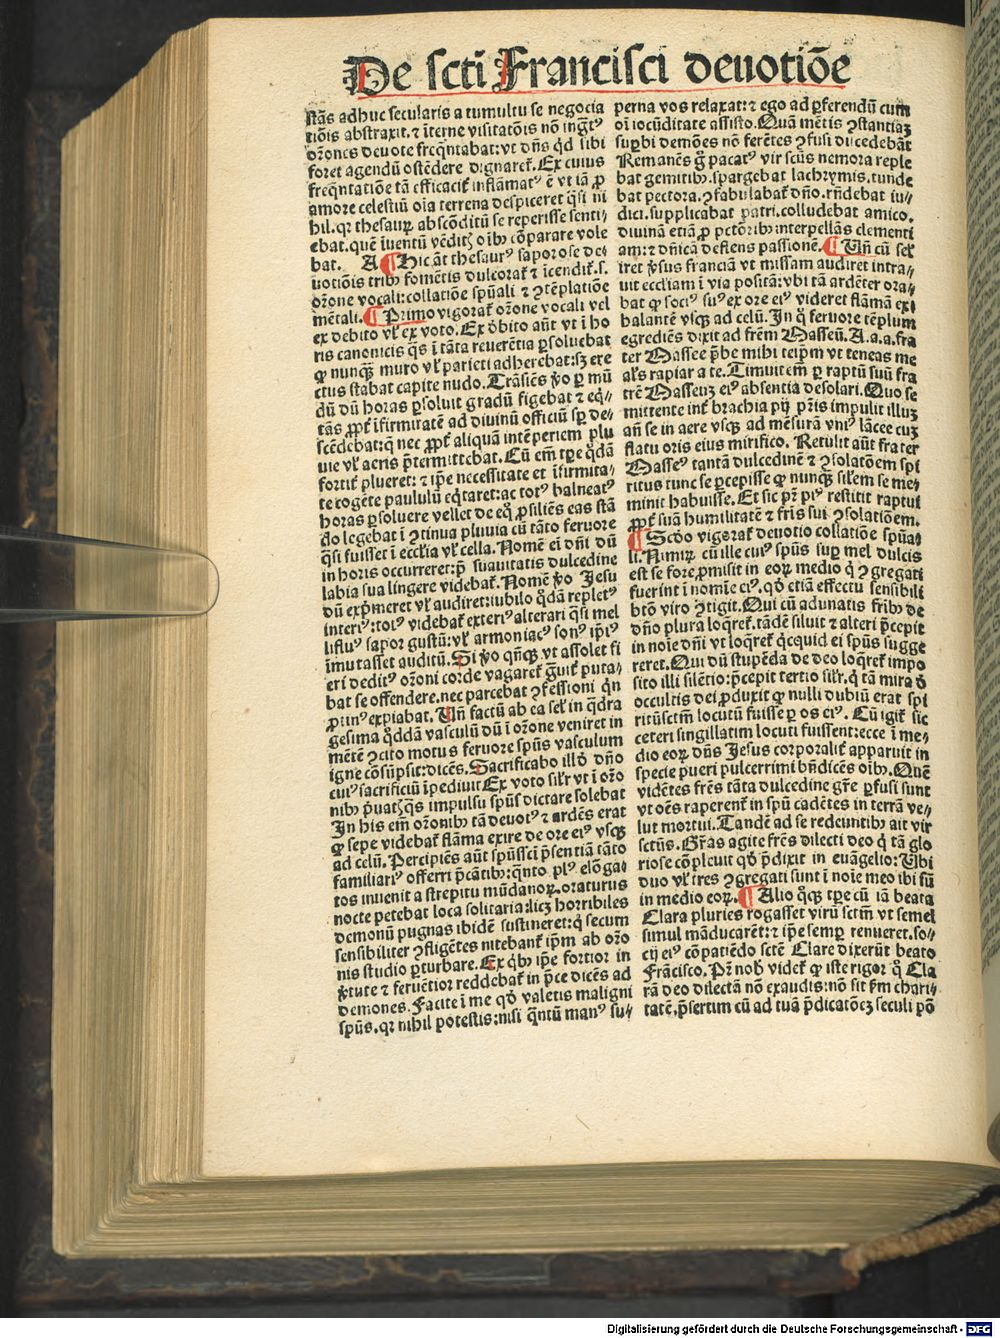 De scti Francisci deuotiõe
stãs adhuc secularis a tumultu se negocia
tiõis abstraxit. ⁊ ĩterne visitatõis nõ ingͭꝰ
oꝛones deuote freq̃ntabat: vt dñs qd̃ sibi
foret agendũ ostẽdere dignaret᷑. Ex cuius
freq̃ntatiõe tã efficacit᷑ inflãmatꝰ ẽ vt iã ꝓ
amore celestiũ oĩa terrena despiceret q̃si ni
hil. qꝛ thesauꝝ abscõditũ se reperisse senti-
ebat. quẽ iuentũ vẽditꝭ oĩbꝰ cõparare vole
bat. A ¶ Hic ãt thesaurꝰ saporose de-
uotiõis tribꝰ fomẽtis dulcorat᷑ ⁊ icendit᷑. s.
oꝛone vocali: collatiõe spũali ⁊ ꝯtẽplatiõe
mẽtali. ¶ Primo vigorat᷑ oꝛone vocali vel
ex debito vl᷑ ex voto. Ex d̕bito aũt vt ĩ ho
ris canonicis q̃s ĩ tãta reuerẽtia ꝑsoluebat
ꝙ nunqͣꝫ muro vl᷑ parieti adherebat: sꝫ ere
ctus stabat capite nudo. Trãsiẽs ꝟo ꝑ mũ
dũ dũ horas ꝑsoluit gradũ figebat ⁊ eq̃-
tãs ꝓpt᷑ ĩfirmitatẽ ad diuinũ officiũ sꝑ de-
scẽdebat: q̃ nec ꝓpt᷑ aliquã intẽperiem plu
uie vl᷑ aeris p̃termittebat. Cũ em̃ tꝑe qͦdã
fortit᷑ plueret: ⁊ ip̃e necessitate et ĩfirmita-
te cogẽte paululũ eq̃taret: ac totꝰ balneatꝰ
horas ꝑsoluere vellet de eqͦ ꝓsiliẽs eas stã
do legebat ĩ ꝯtinua pluuia cũ tãto feruore
q̃si fuisset ĩ eccl̃ia vl᷑ cella. Nomẽ ei dñi dũ
in horis occurreret: p̃ suauitatis dulcedine
labia sua lingere videbat᷑. Nomẽ ꝟo Jesu
dũ exp̃meret vl᷑ audiret: iubilo qͦdã repletꝰ
interiꝰ: totꝰ videbat᷑ exteriꝰ alterari q̃si mel
lifluꝰ sapor gustũ: vl᷑ armoniacꝰ sonꝰ ip̃iꝰ
ĩmutasset auditũ. Si ꝟo qñqꝫ vt assolet fi
eri deditꝰ oꝛoni corde vagaret᷑ g̃uit᷑ puta-
bat se offendere. nec parcebat ꝯfessioni qͥn
ꝓtinꝰ expiabat. Un̄ factũ ab ea sel᷑ in qͣdra
gesima qͦddã vasculũ dũ ĩ oꝛone veniret in
mẽtẽ ꝯcito motus feruore spũs vasculum
igne cõsũpsit: dicẽs. Sacrificabo illõ dño
cuiꝰ sacrificiũ ĩpediuit Ex voto sil᷑r vt ĩ oꝛo
nibꝰ p̃uatꝭ q̃s impulsu spũs dictare solebat
Jn his em̃ oꝛonibꝰ tã deuotꝰ ⁊ ardẽs erat
ꝙ sepe videbat᷑ flãma exire de ore eiꝰ vsqꝫ
ad celũ. Percipiẽs aũt spũssci p̃sentiã tãto
familiariꝰ offerri p̃cãtibꝰ: q̃nto plꝰ elõga-
tos inuenit a strepitu mũdanoꝝ. oraturus
nocte petebat loca solitaria: licꝫ horribiles
demonũ pugnas ibidẽ sustineret: q̃ secum
sensibiliter ꝯfligẽtes nitebant᷑ ip̃m ab oꝛo
nis studio ꝑturbare. Ex qͥbꝰ ip̃e fortior in
ꝟtute ⁊ feruẽtior reddebat᷑ in p̃ce dicẽs ad
demones. Facite ĩ me qd̕ valetis maligni
spũs. qꝛ nihil potestis: nisi q̃ntũ manꝰ su-
perna vos relaxat: ⁊ ego ad ꝑferendũ cum
oĩ iocũditate assisto. Quã mẽtis ꝯstantiaꝫ
suꝑbi demões nõ ferẽtes ꝯfusi discedebãt
Remanẽs g̃ pacatꝰ vir scũs nemora reple
bat gemitibꝰ. spargebat lachrymis. tunde
bat pectora. ꝯfabulabat᷑ dño. rñdebat iu-
dici. supplicabat patri. colludebat amico.
diuinã etiã ꝓ pctõribꝰ interpellãs clementi
am: ⁊ dñicã deflens passionẽ. ¶ Un̄ cũ sel᷑
iret ꝟsus franciã vt missam audiret intra-
uit eccl̃iam ĩ via positã: vbi tã ardẽter ora-
bat ꝙ sociꝰ suꝰ ex ore eiꝰ videret flãmã exi
balantẽ vsqꝫ ad celũ. Jn qͦ feruore tẽplum
egrediẽs dixit ad frẽm Masseũ. A. a. a. fra
ter Massee p̃be mihi teip̃m vt teneas me
al᷑s rapiar a te. Timuit em̃ ꝑ raptũ suũ fra
trẽ Masseuꝫ eiꝰ absentia desolari. Quo se
mittente int᷑ brachia pij pr̃is impulit illuꝫ
añ se in aere vsqꝫ ad mẽsurã vniꝰ lãcee cuꝫ
flatu oris eius mirifico. Retulit aũt frater
Masseꝰ tantã dulcedinẽ ⁊ ꝯsolatõem spi
ritus tunc se ꝑcepisse ꝙ nunqͣꝫ sil᷑em se me-
minit habuisse. Et sic pr̃ piꝰ restitit raptui
ꝓpt᷑ suã humilitatẽ ⁊ fris sui ꝯsolatiõem.
¶ Scd̕o vigorat᷑ deuotio collatiõe spũa-
li. Nimiꝝ cũ ille cuiꝰ spũs suꝑ mel dulcis
est se fore ꝓmisit in eoꝝ medio qͥ ꝯgregati
fuerint ĩ nomĩe eiꝰ. qd̕ etiã effectu sensibili
btõ viro ꝯtigit. Qui cũ adunatis fribꝰ de
dño plura loq̃ret᷑. tãdẽ siluit ⁊ alteri p̃cepit
in noĩe dñi vt loq̃ret᷑ qͥcquid ei spũs sugge
reret. Qui dũ stupẽda de deo loq̃ret᷑ impo
sito illi silẽtio: p̃cepit tertio sil᷑r. qͥ tã mira d̕
occultis dei ꝓduxit ꝙ nulli dubiũ erat spi
ritũsctm̃ locutũ fuisse ꝑ os eiꝰ. Cũ igit᷑ sic
ceteri singillatim locuti fuissent: ecce ĩ me-
dio eoꝝ dñs Jesus corporalit᷑ apparuit in
specie pueri pulcerrimi bñdicẽs oĩbꝰ. Quẽ
vidẽtes frẽs tãta dulcedine gr̃e ꝑfusi sunt
vt oẽs raperent᷑ in spũ cadẽtes in terrã ve-
lut mortui. Tandẽ ad se redeuntibꝰ ait vir
sctũs. Gr̃as agite frẽs dilecti deo qͥ tã glo
riose cõpleuit qd̕ p̃dixit in euãgelio: Ubi
duo vl᷑ tres ꝯgregati sunt ĩ noĩe meo ibi sũ
in medio eoꝝ. ¶ Alio qͦqꝫ tꝑe cũ iã beata
Clara pluries rogasset virũ sctm̃ vt semel
simul mãducarẽt: ⁊ ip̃e semꝑ renueret. so-
cij eiꝰ cõpatiẽdo sctẽ Clare dixerũt beato
Frãcisco. Pr̃ nob̕ videt᷑ ꝙ iste rigor qͦ Cla
rã deo dilectã nõ exaudis: nõ sit ẜm chari-
tatẽ, p̃sertim cũ ad tuã p̃dicatõeꝫ seculi põ
Digitalisierung gefördert durch die Deutsche Forschungsgemeinschaft - DFG